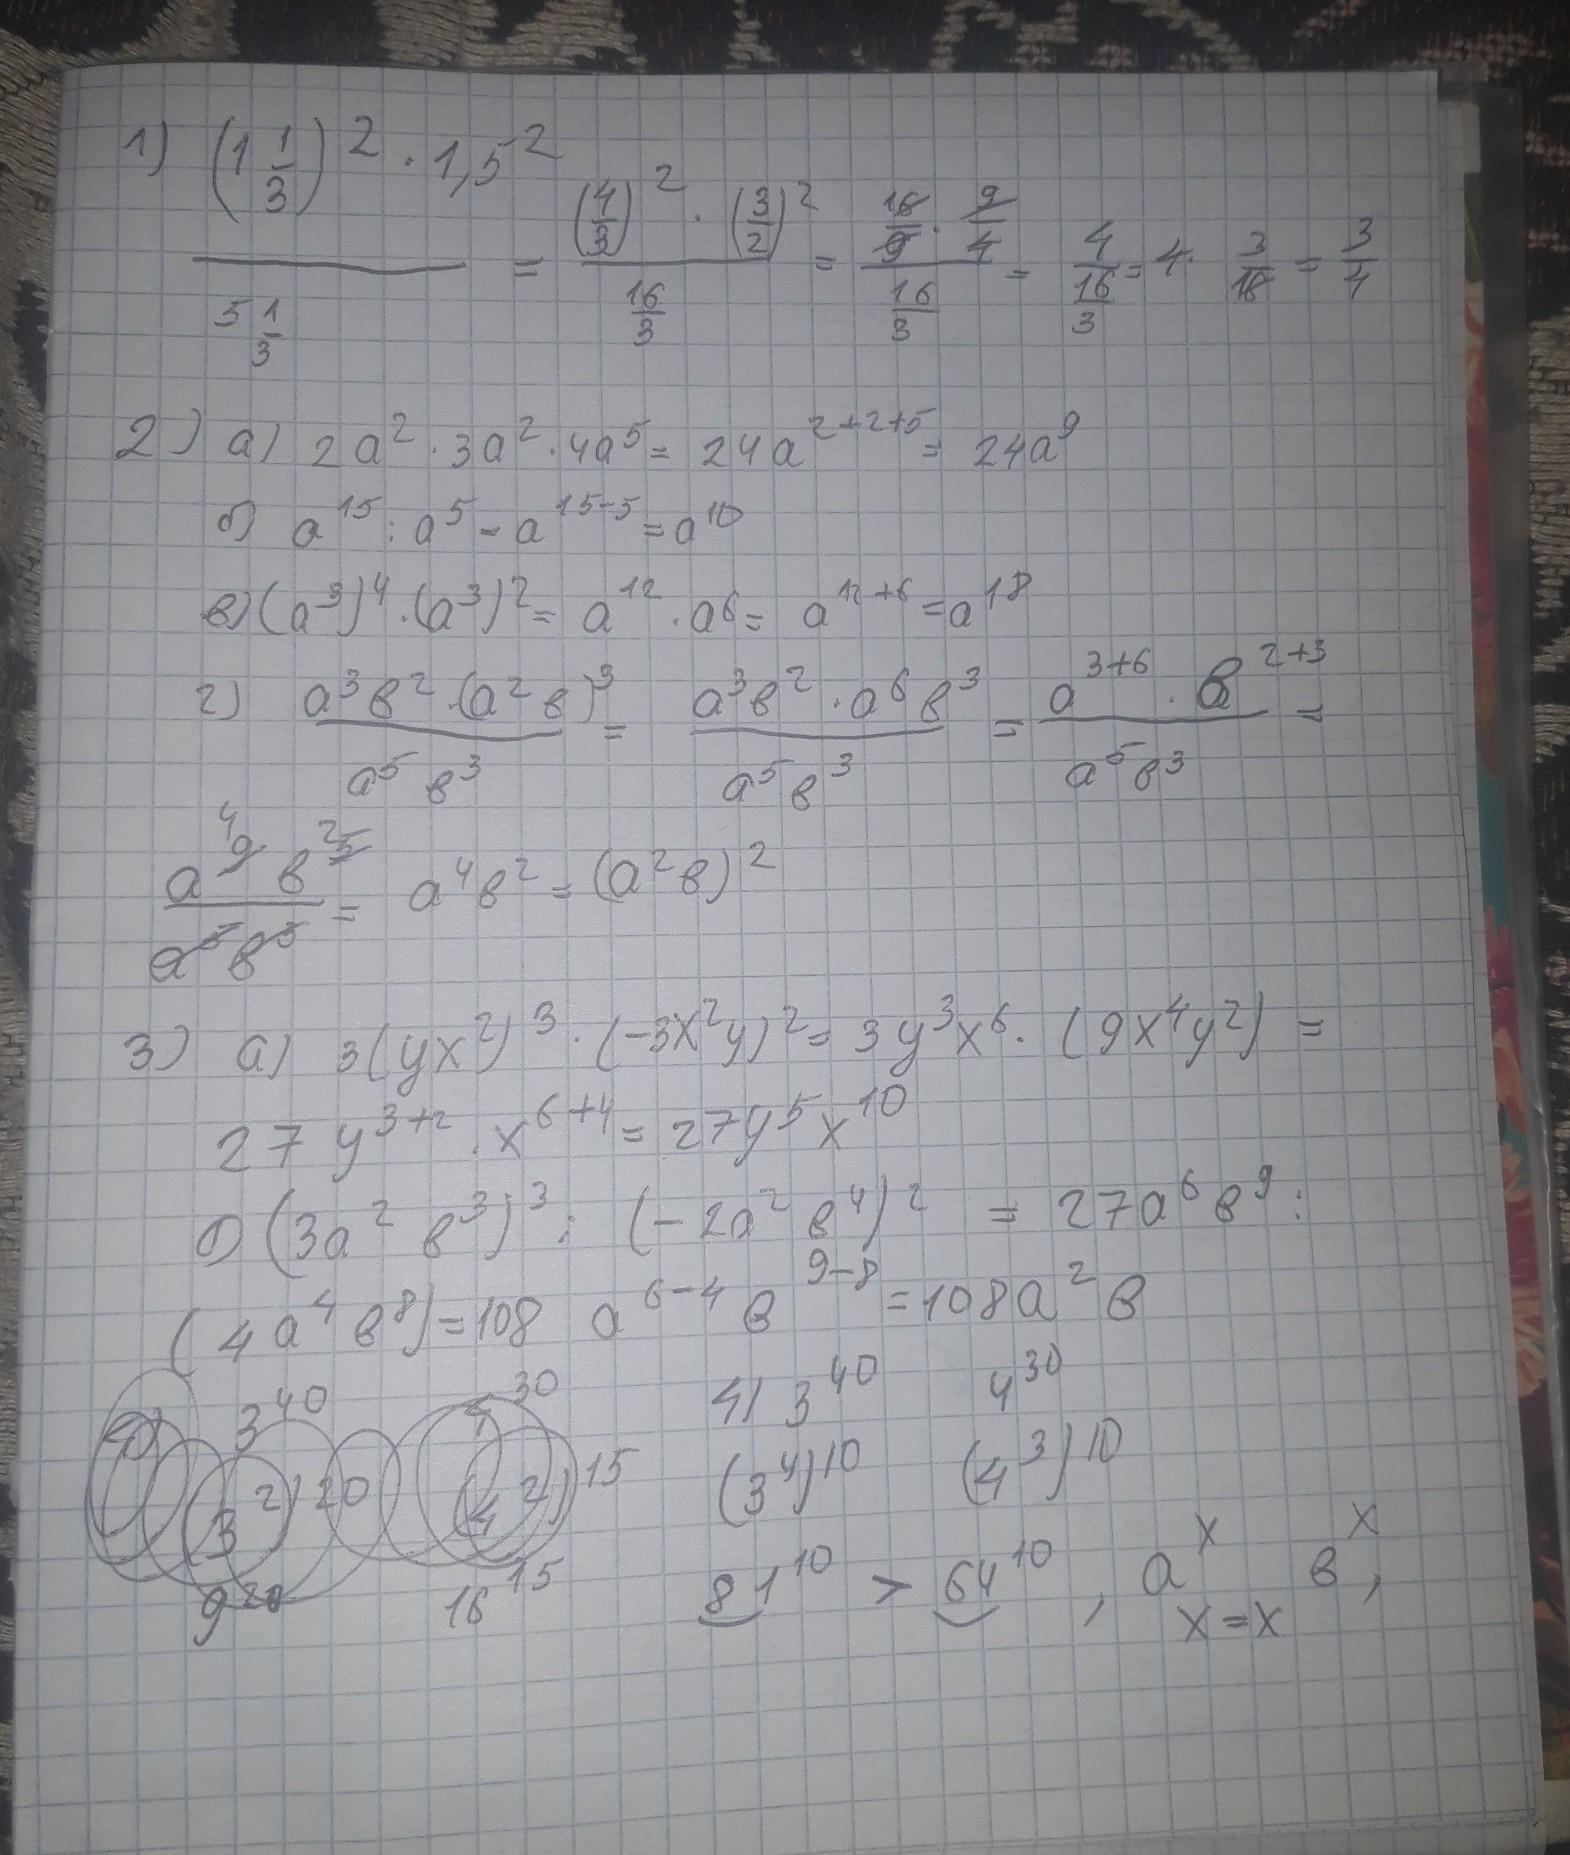 1) (1 1/3)² · 1,5² / 5 1/3 = (4/3)² · (3/2)² / 16/3 = 16/9 · 9/4 / 16/3 = 4 / 16/3 = 4 · 3/16 = 3/4
2) а) 2a² · 3a² · 4a⁵ = 24a²⁺²⁺⁵ = 24a⁹
б) a¹⁵ : a⁵ - a¹⁵⁻⁵ = a¹⁰
в) (a³)⁴ · (a³)² = a¹² · a⁶ = a¹²⁺⁶ = a¹⁸
г) a³в² · (a²в)³ / a⁵в³ = a³в² · a⁶в³ / a⁵в³ = a³⁺⁶ · в²⁺³ / a⁵в³ =
a⁹в⁵ / a⁵в³ = a⁴в² = (a²в)²
3) а) 3(yx²)³ · (-3x²y)² = 3y³x⁶ · (9x⁴y²) =
27y³⁺² · x⁶⁺⁴ = 27y⁵x¹⁰
б) (3a² в³)³ : (-2a² в⁴)² = 27a⁶в⁹ :
(4a⁴в⁸) = 108 a⁶⁻⁴в⁹⁻⁸ = 108a²в
3⁴⁰ 4³⁰
(3²)²⁰ (4²)¹⁵
9²⁰ 16¹⁵
4) 3⁴⁰ 4³⁰
(3⁴)¹⁰ (4³)¹⁰
81¹⁰ > 64¹⁰, aˣ вˣ,
x = x